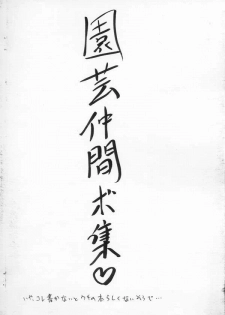 園芸仲間ボ集♡
いや、コレ書かないとウチの本らしくないんで…